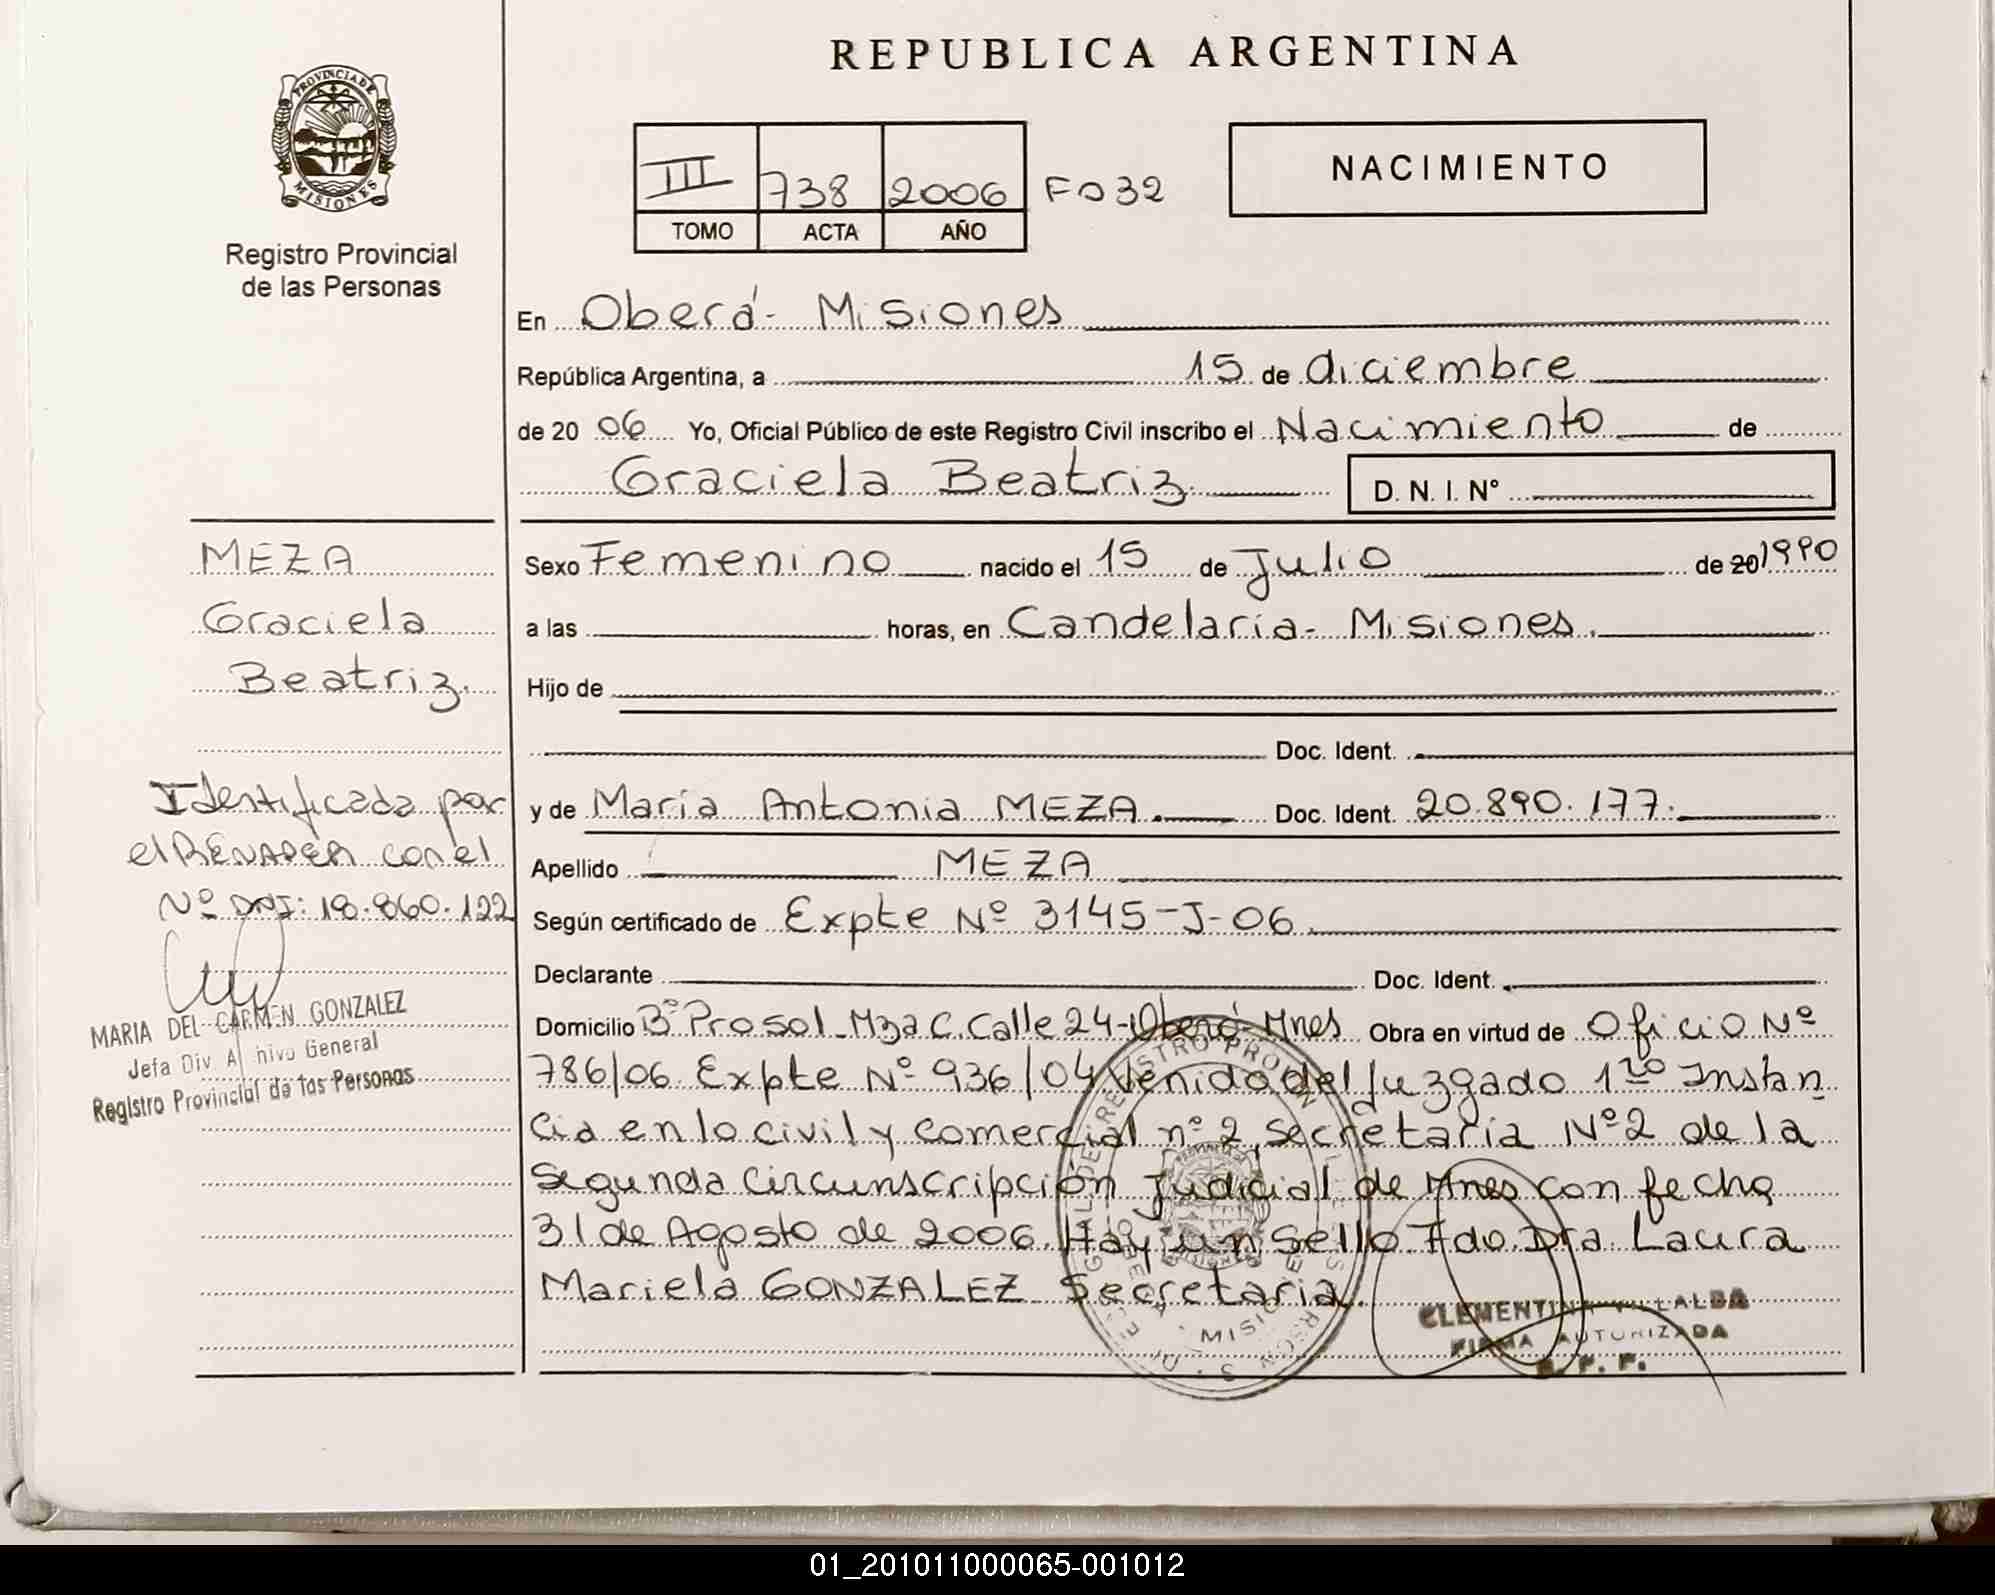 REPUBLICA ARGENTINA
PROVINCIA DE
MISIONES
Registro Provincial
de las Personas
III 738 2006 Fo 32
TOMO ACTA AÑO
NACIMIENTO
En Oberá - Misiones
República Argentina, a 15 de diciembre
de 20 06 Yo, Oficial Público de este Registro Civil inscribo el Nacimiento de
Graciela Beatriz. D. N. I. Nº
MEZA
Graciela
Beatriz.
Identificada por
el RENAPER con el
Nº DNI: 18.860.122
MARIA DEL CARMEN GONZALEZ
Jefa Div A hivo General
Registro Provincial de las Personas
Sexo Femenino nacido el 15 de Julio de 20 1990
a las horas, en Candelaria - Misiones.
Hijo de
Doc. Ident.
y de María Antonia MEZA. Doc. Ident. 20.890.177.
Apellido MEZA
Según certificado de Expte Nº 3145-J-06.
Declarante Doc. Ident.
Domicilio Bº Prosol - Mza C. Calle 24 - Oberá - Mnes Obra en virtud de Oficio Nº
786/06 Expte Nº 936/04 Venido del Juzgado 1ro Instan
cia en lo civil y comercial nº 2, secretaria Nº 2 de la
Segunda Circunscripción Judicial de Mnes con fecha
31 de Agosto de 2006. Hay un sello Fdo. Dra Laura
Mariela GONZALEZ Secretaria.
CLEMENTINA VILLALBA
FIRMA AUTORIZADA
R. P. P.
01_201011000065-001012